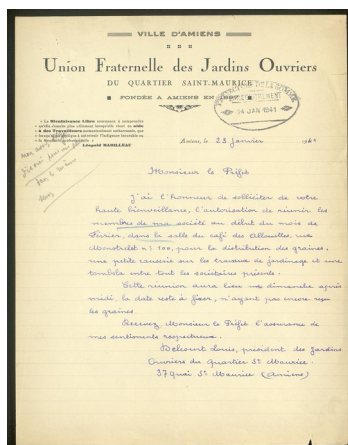 VILLE D'AMIENS
Union Fraternelle des Jardins Ouvriers
DU QUARTIER SAINT-MAURICE
FONDÉE A AMIENS EN
24 JAN 1941
Léopold MABILLEAU
Amiens, le 23 Janvier 194
Monsieur le Préfet
J'ai l'honneur de solliciter de votre
haute bienveillance, l'autorisation de réunir les
membres de ma société au début du mois de
Février, dans la salle du café des Alouettes, rue
Monstrelet n: 100, pour la distribution des graines,
une petite causerie sur les travaux de jardinage et une
tombola entre tout les sociétaires présents.
Cette réunion aura lieu un dimanche après
midi, la date reste à fixer, n'ayant pas encore reçu
les graines.
Recevez, Monsieur le Préfet l'assurance de
mes sentiments respectueux.
Delcourt Louis, président des Jardins
Ouvriers du Quartier St Maurice.
37 Quai St Maurice (Amiens)